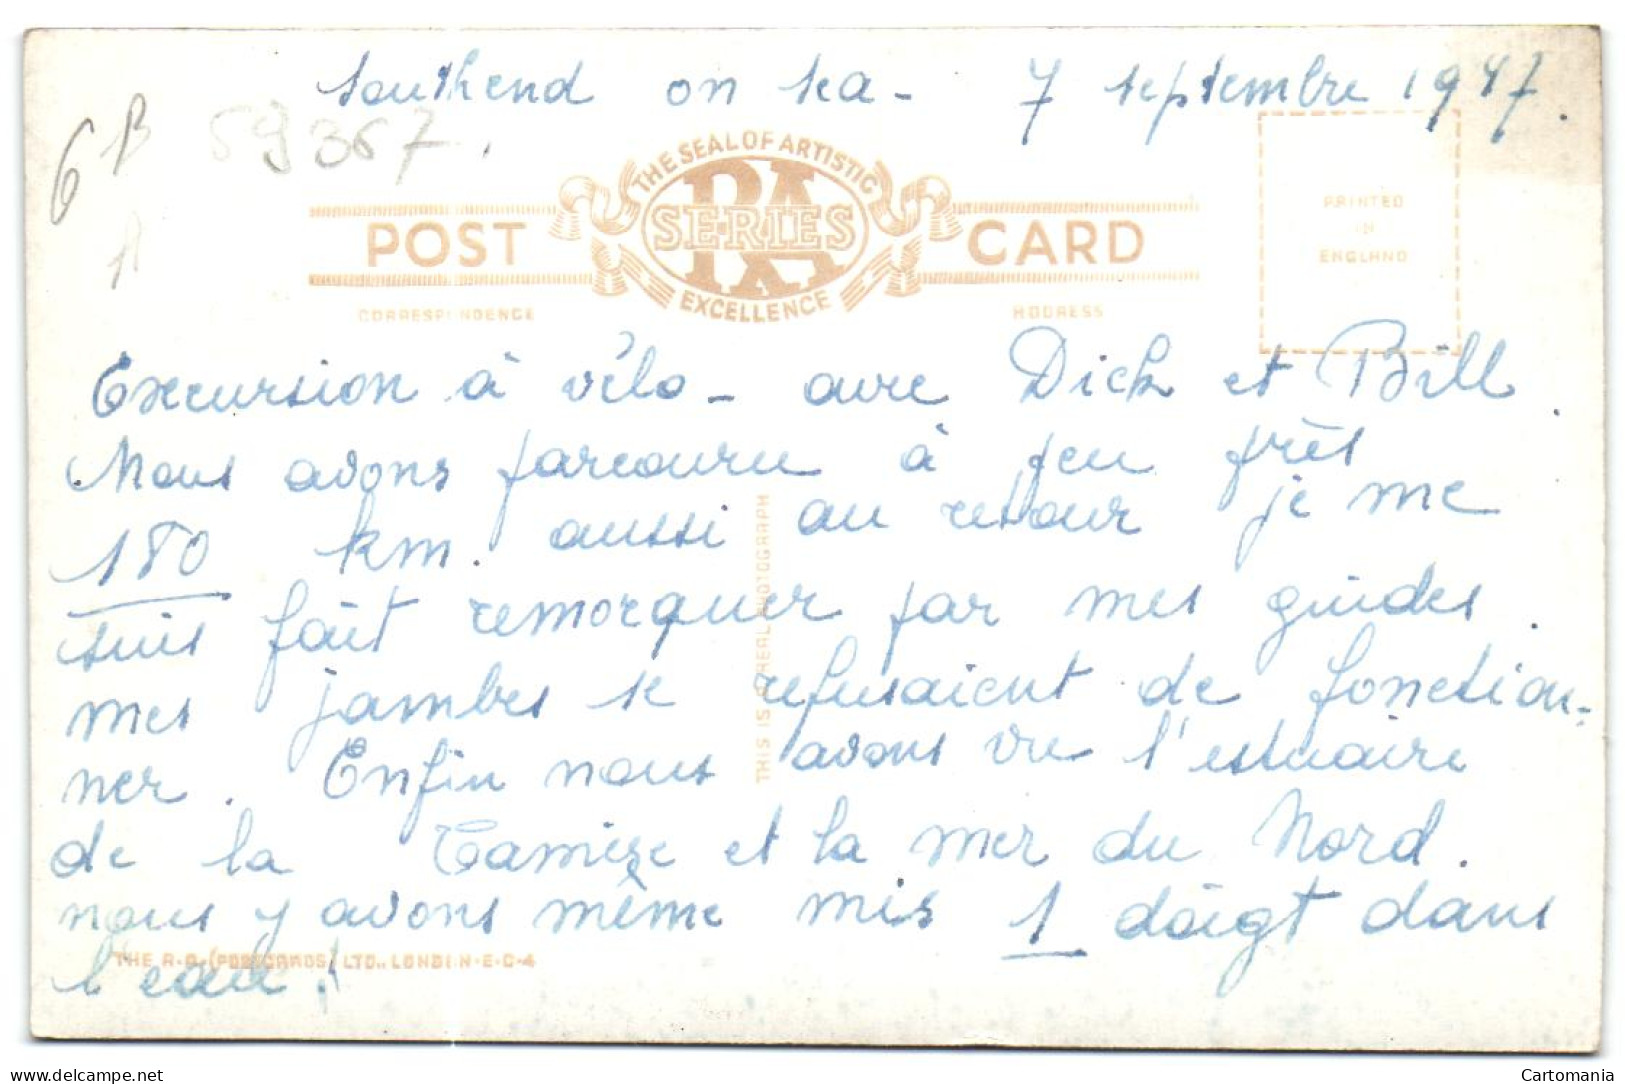 Southend on sea - 7 septembre 1947.
GB 59367.
THE SEAL OF ARTISTIC
RA
SERIES
EXCELLENCE
POST CARD
CORRESPONDENCE ADDRESS
PRINTED
IN
ENGLAND
Excursion à vélo - avec Dick et Bill.
Nous avons parcouru à peu près
180 km. aussi au retour je me
suis fait remorquer par mes guides.
mes jambes se refusaient de fonction-
ner. Enfin nous avons vu l'estuaire
de la Tamise et la mer du Nord.
nous y avons même mis 1 doigt dans
l'eau!
THIS IS A REAL PHOTOGRAPH
THE R.A. (POSTCARDS) LTD., LONDON. E.C.4
Cartomania